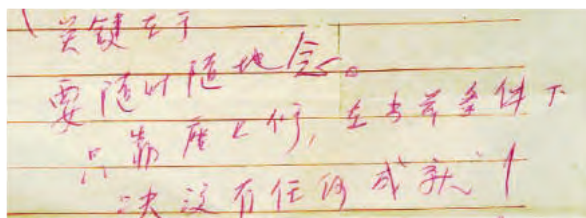 关键在于
要随时随地念。
只靠座上修，在当前条件下
决没有任何成就！